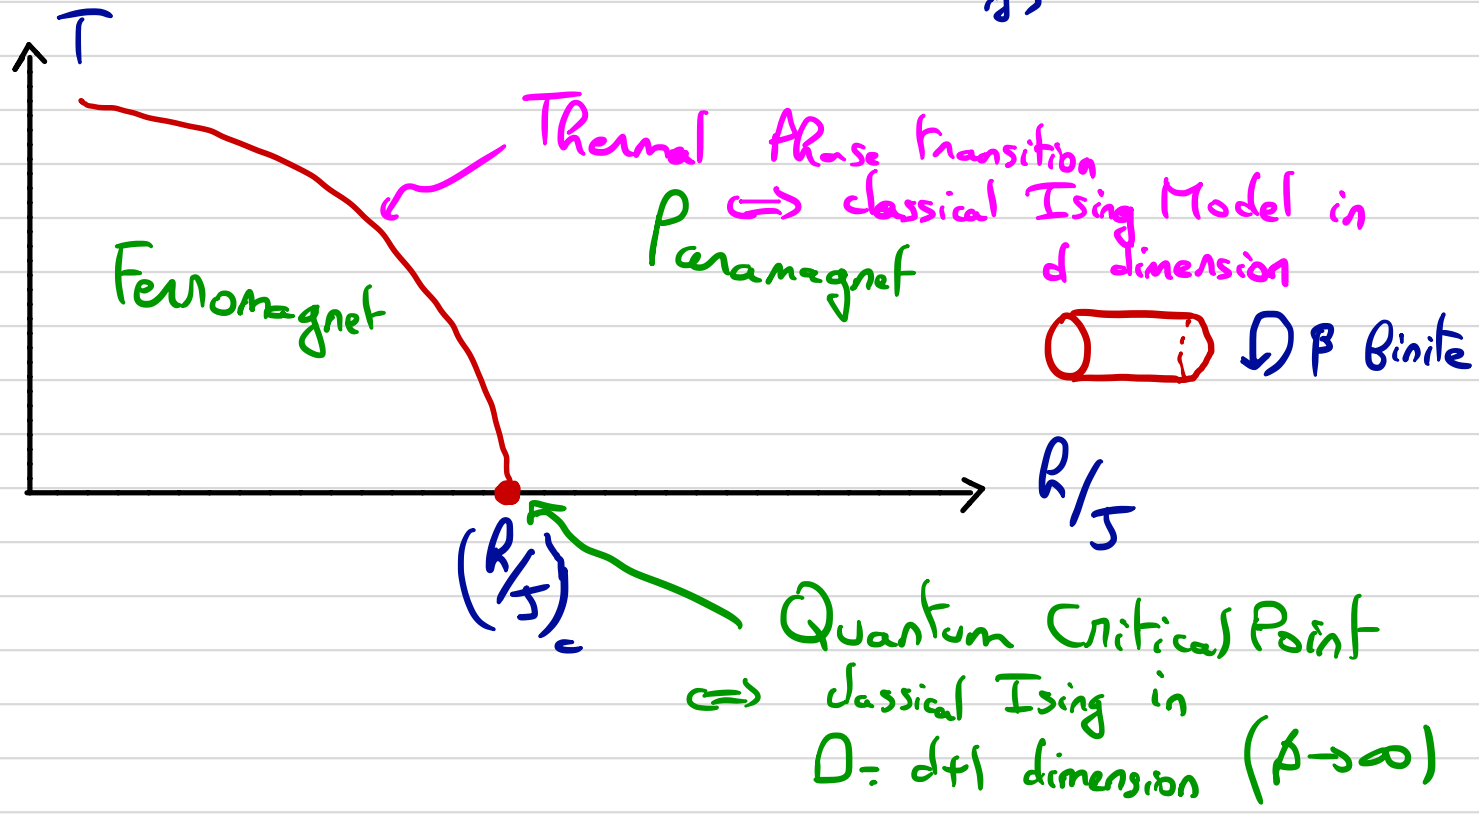 T
Thermal Phase transition
⟺ classical Ising Model in
d dimension
Paramagnet
Ferromagnet
β finite
h/J
(h/J)c
Quantum Critical Point
⟺ classical Ising in
D = d+1 dimension (β→∞)